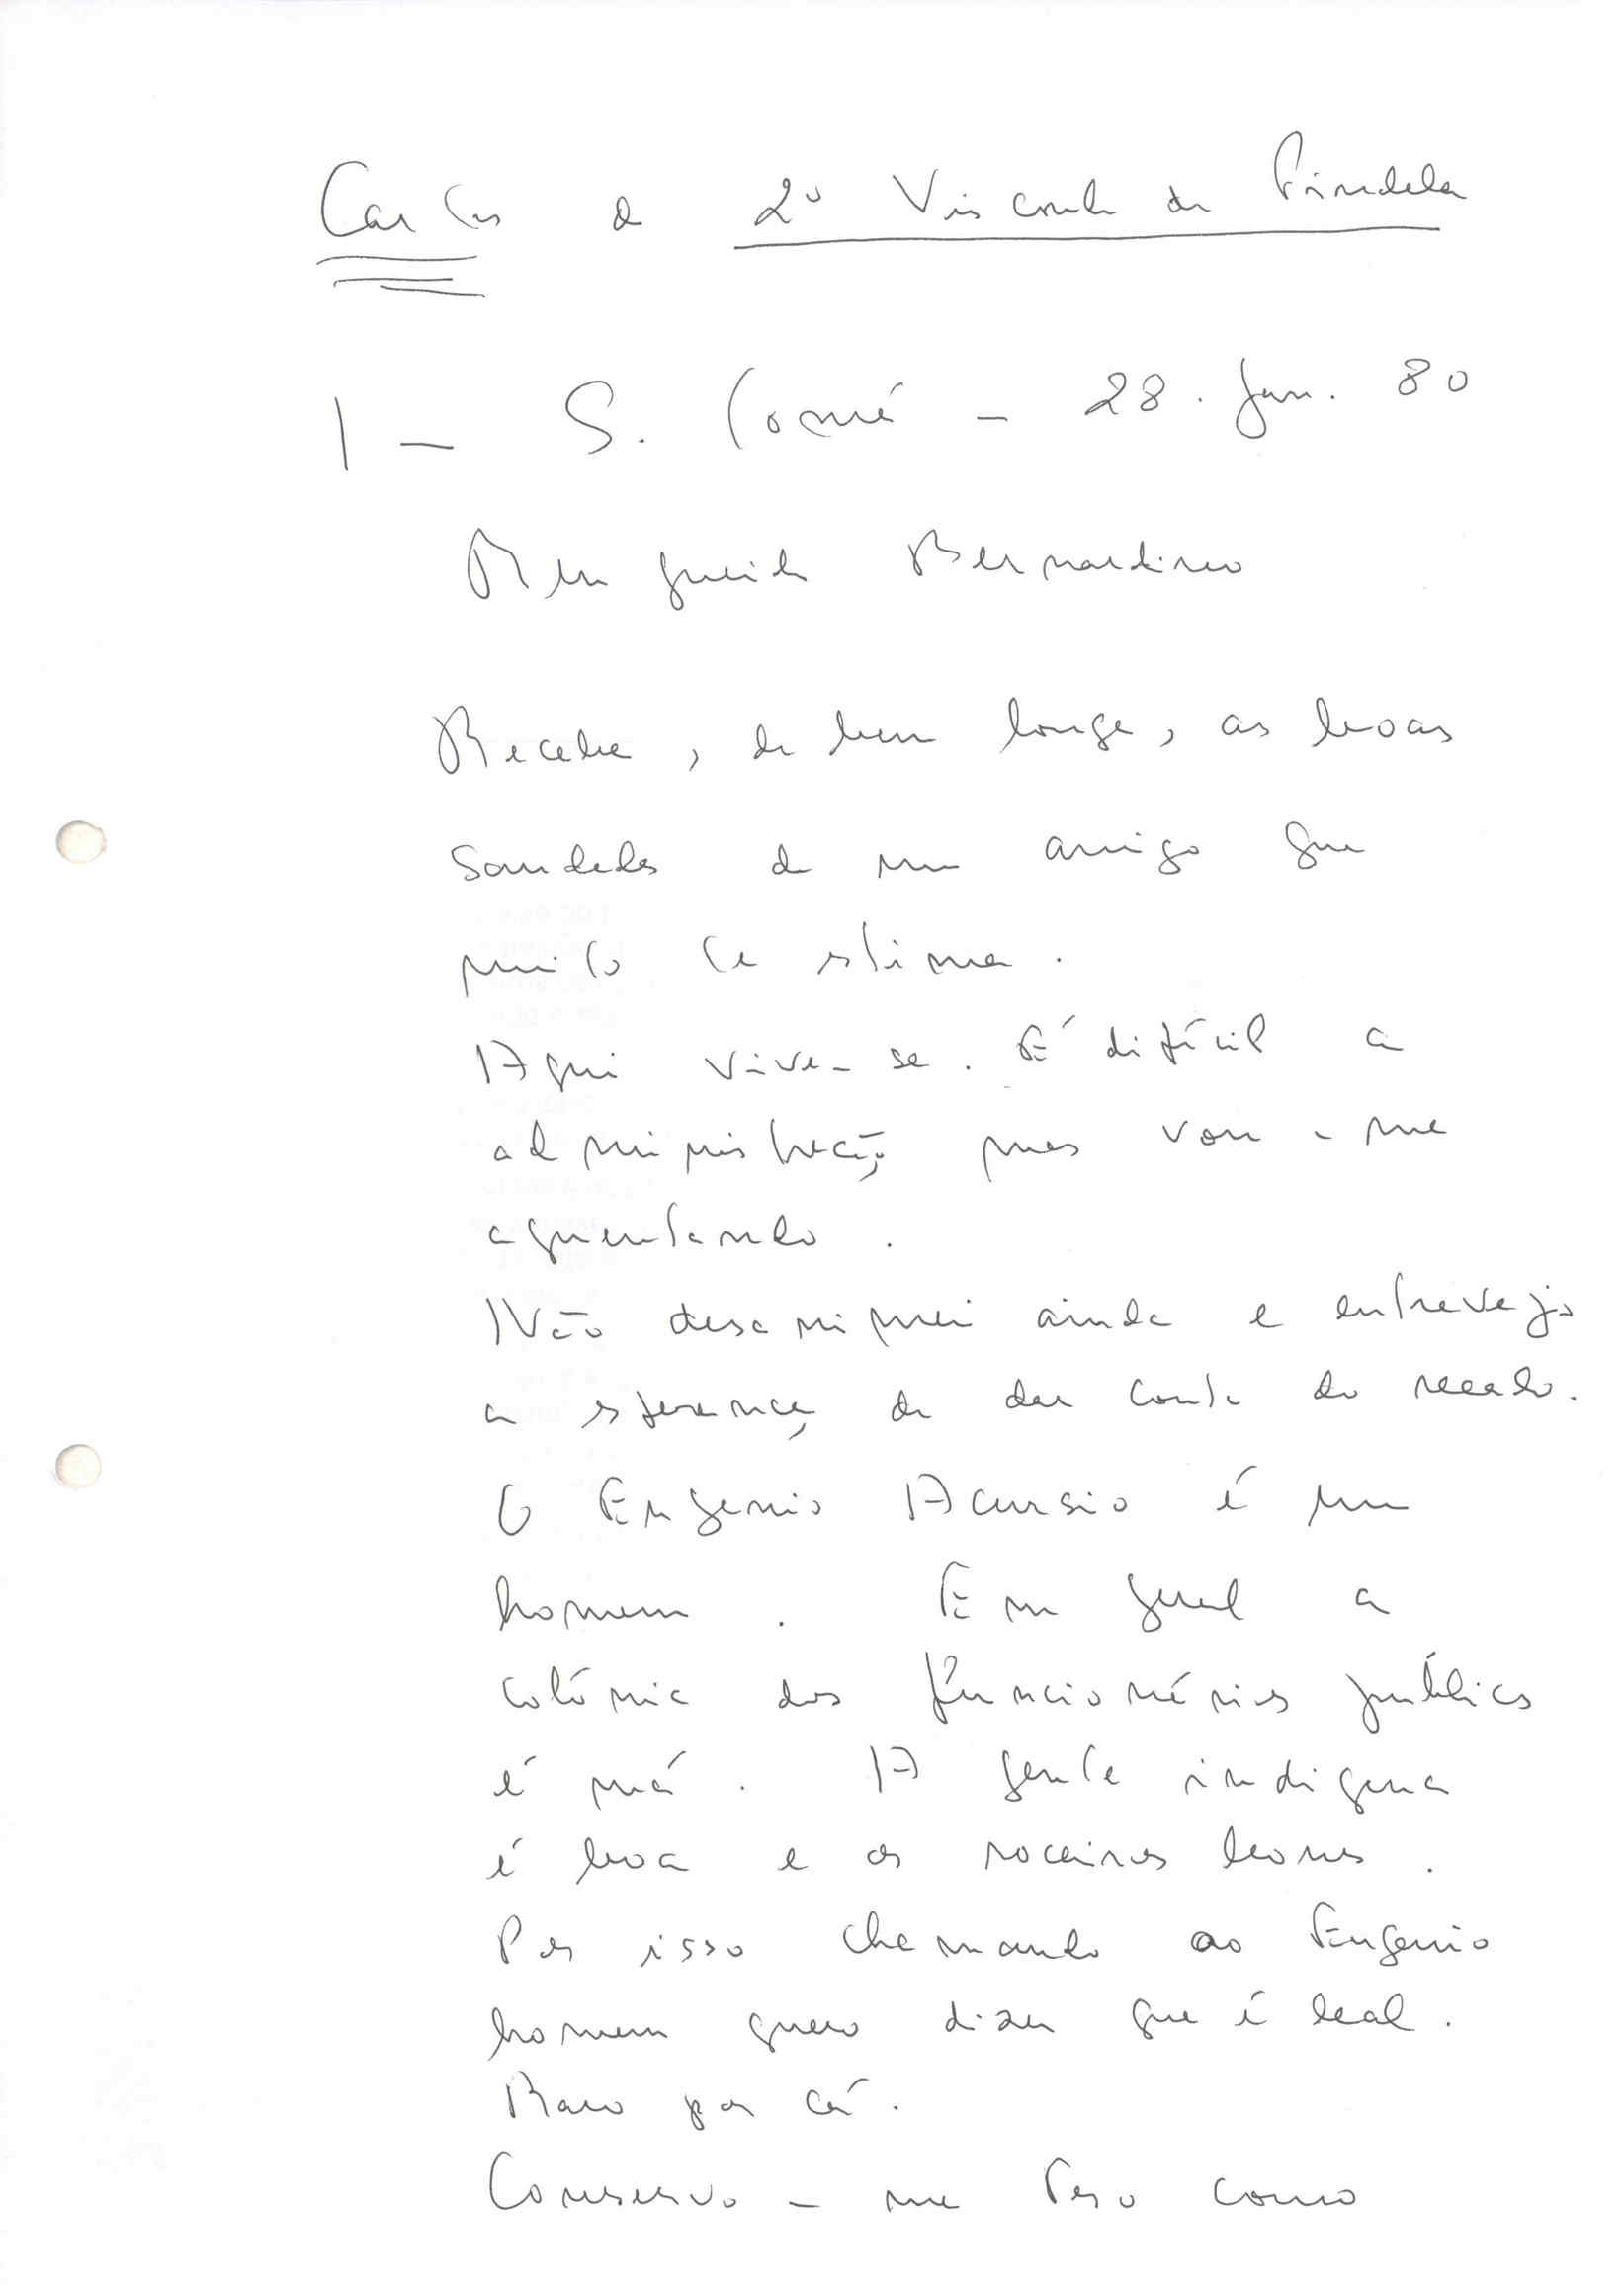 Cartas do 2º Visconde de Pindela
1 – S. Tomé – 28. Jan. 80
Meu querido Bernardino
Recebe, de bem longe, as boas
saudades de um amigo que
muito te estima.
Aqui vive-se. É difícil a
administração mas vou-me
aguentando.
Não desanimei ainda e entrevejo
a esperança de dar conta do recado.
O Eugenio Acursio é um
homem. Em geral a
colónia dos funcionários públicos
é má. A gente indigena
é boa e os roceiros bons.
Por isso chamando ao Eugenio
homem quero dizer que é leal.
Raro por cá.
Conservo-me teso como